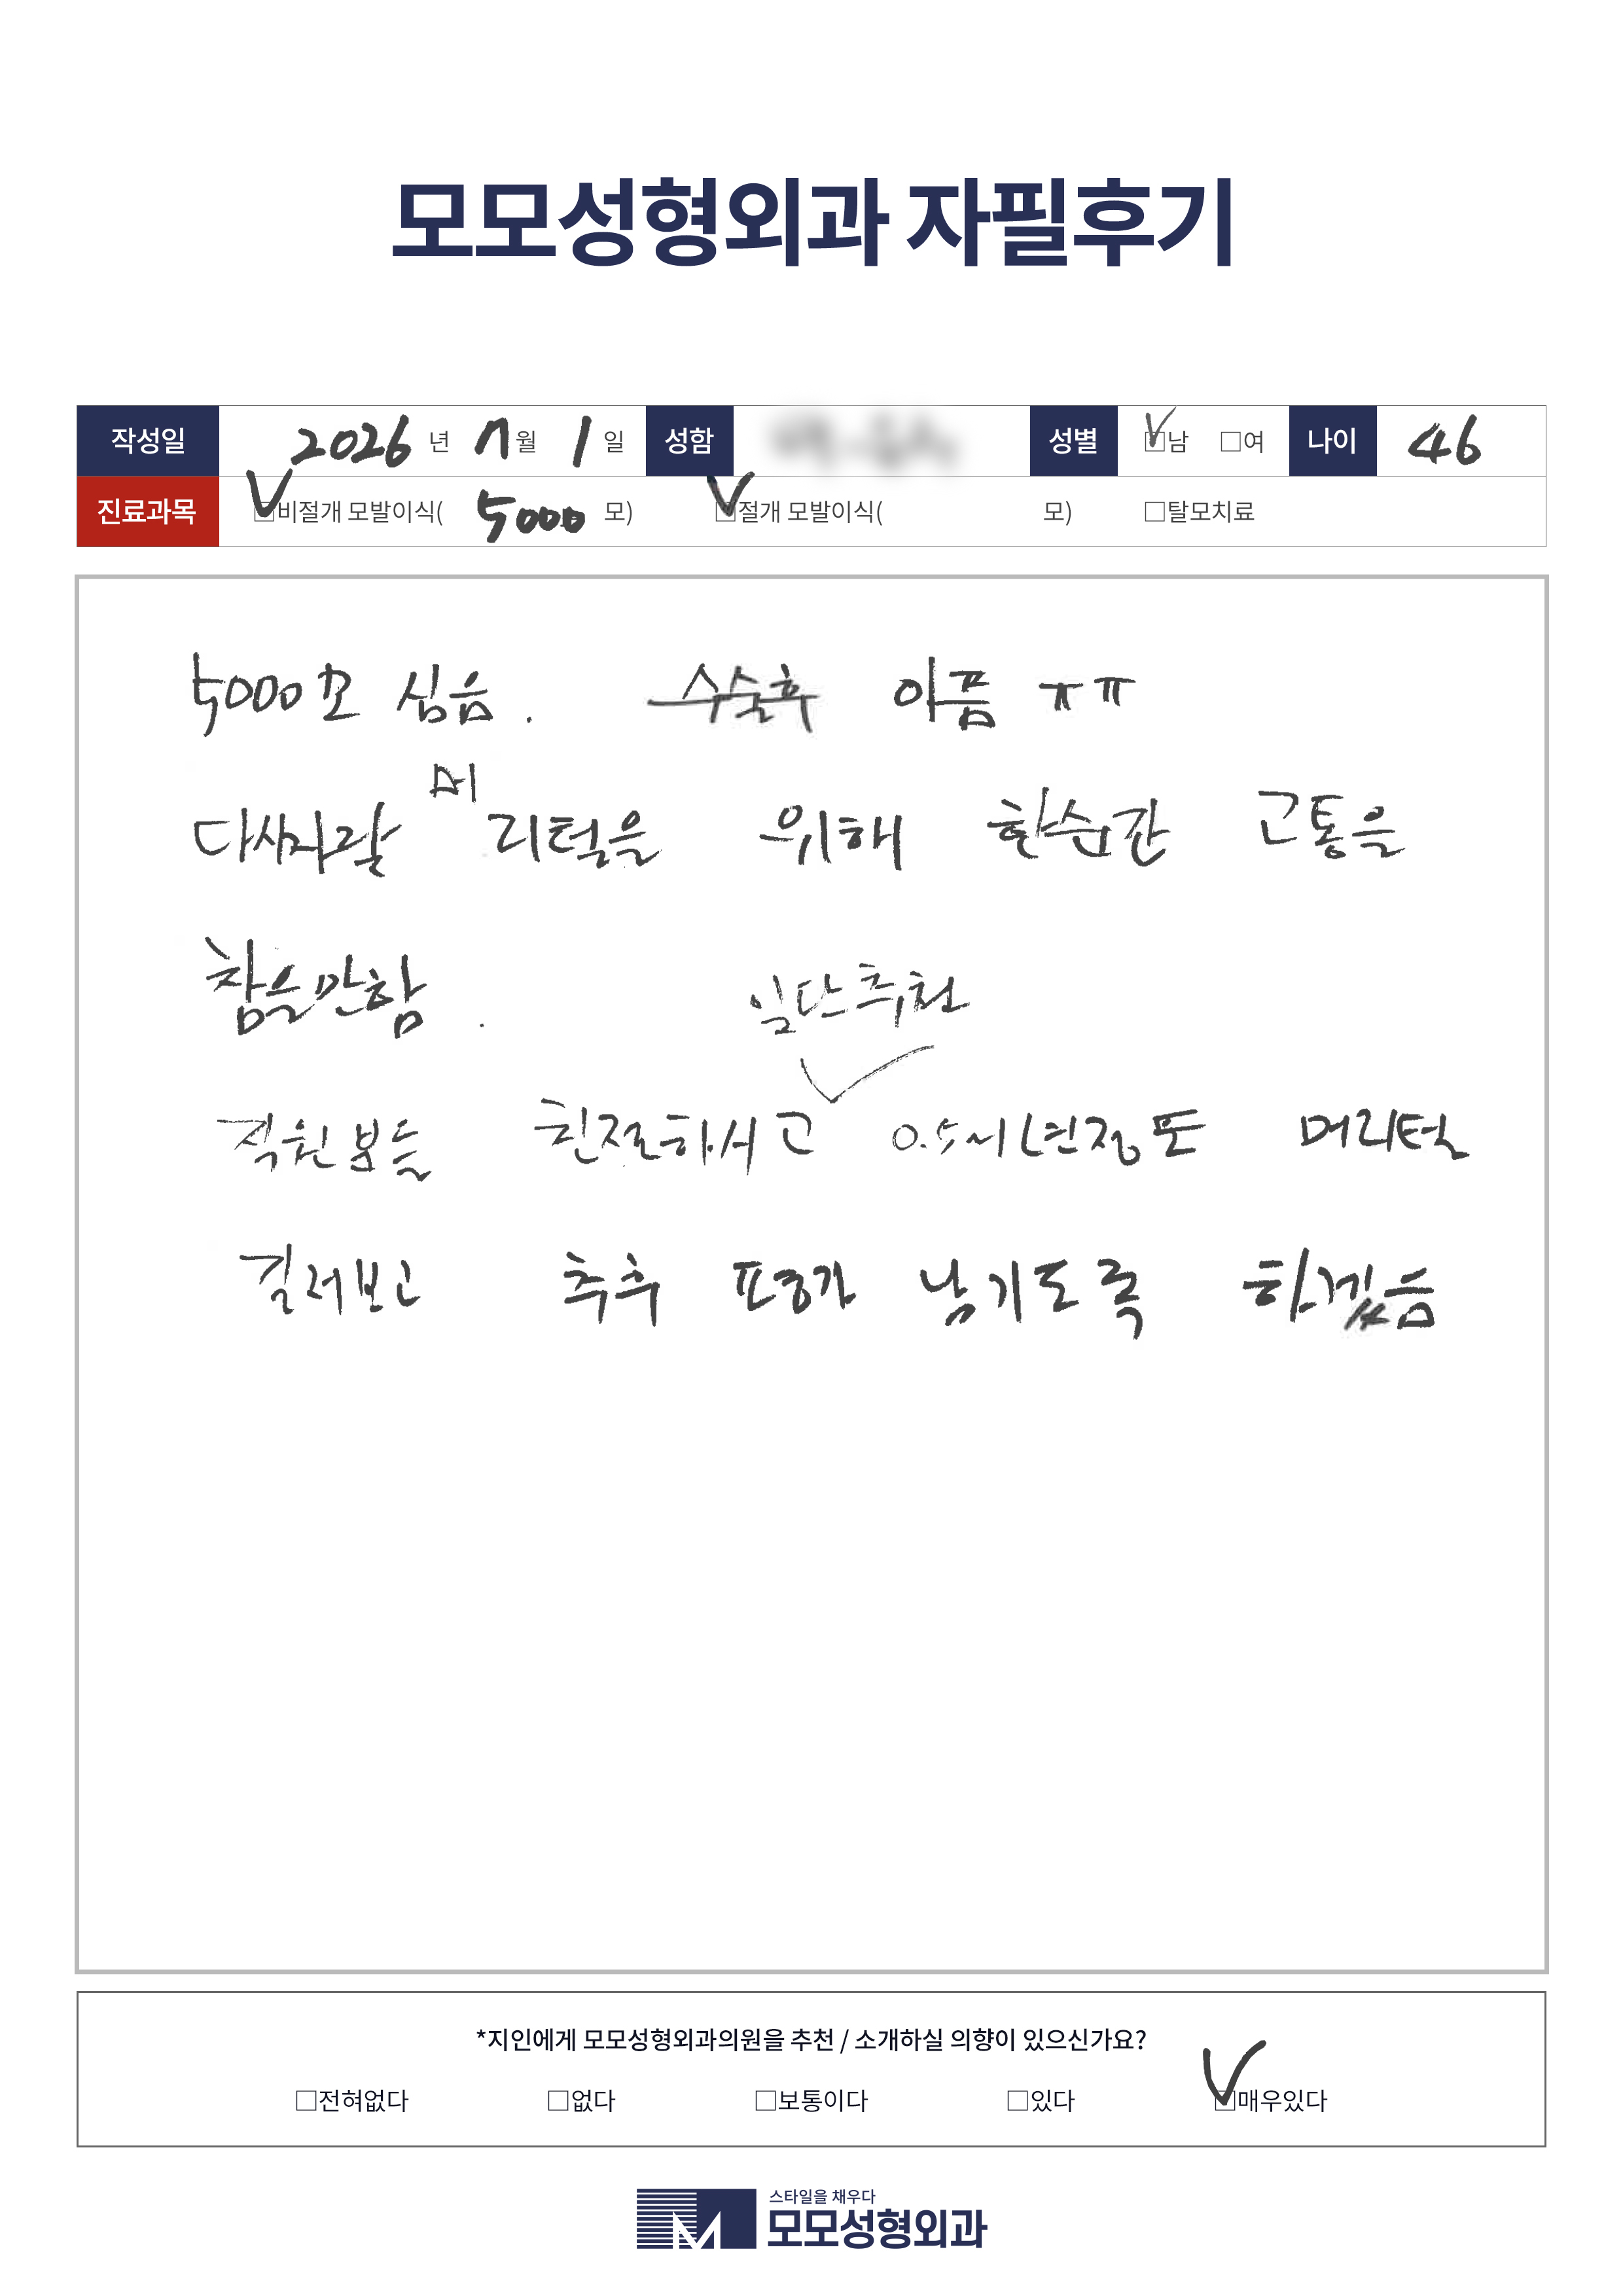 모모성형외과 자필후기
작성일 2026 년 7 월 1 일 성함 성별 ☑남 □여 나이 46
진료과목 ☑비절개 모발이식( 5000 모) ☑절개 모발이식( 모) □탈모치료
5000모 심음. 수술후 아픔 ㅠㅠ
다시자랄 머리털을 위해 한순간 고통을
참을만함.
일단추천
직원분들 친절하시고 0.5세년정도 머리털
길러보고 추후 평가 남기도록 하겠음
*지인에게 모모성형외과의원을 추천 / 소개하실 의향이 있으신가요?
□전혀없다 □없다 □보통이다 □있다 ☑매우있다
스타일을 채우다
모모성형외과